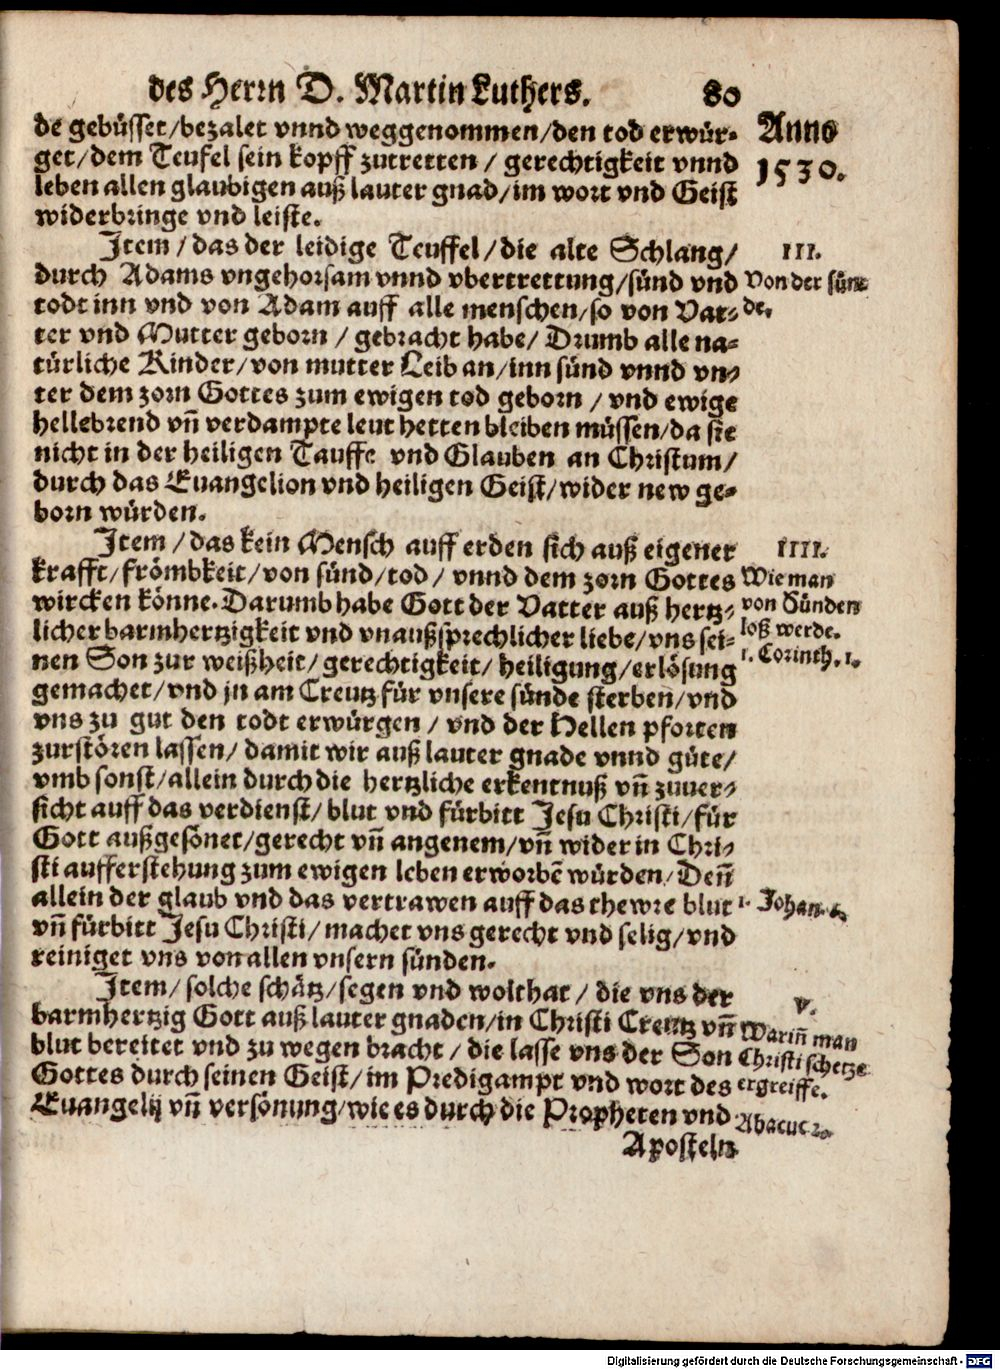 des Herrn D. Martin Luthers. 80
de gebüsset/bezalet vnnd weggenommen/den tod erwür-
get/dem Teufel sein kopff zutretten / gerechtigkeit vnnd
leben allen glaubigen auß lauter gnad/im wort vnd Geist
widerbringe vnd leiste.
Anno
1530.
Item / das der leidige Teuffel/die alte Schlang/
durch Adams vngehorsam vnnd vbertrettung/sünd vnd
todt inn vnd von Adam auff alle menschen/so von Vat-
ter vnd Mutter geborn / gebracht habe/ Drumb alle na-
türliche Kinder/von mutter Leib an/inn sünd vnnd vn-
ter dem zorn Gottes zum ewigen tod geborn / vnd ewige
hellebrend vñ verdampte leut hetten bleiben müssen/da sie
nicht in der heiligen Tauffe vnd Glauben an Christum/
durch das Euangelion vnd heiligen Geist/wider new ge-
born würden.
III.
Von der sün-
de.
Item / das kein Mensch auff erden sich auß eigener
krafft/frömbkeit/von sünd/tod / vnnd dem zorn Gottes
wircken könne. Darumb habe Gott der Vatter auß hertz-
licher barmhertzigkeit vnd vnaußsprechlicher liebe/vns sei-
nen Son zur weißheit/gerechtigkeit/heiligung/erlösung
gemachet/vnd jn am Creutz für vnsere sünde sterben/vnd
vns zu gut den todt erwürgen / vnd der Hellen pforten
zurstören lassen/damit wir auß lauter gnade vnnd güte/
vmb sonst/allein durch die hertzliche erkentnuß vñ zuuer-
sicht auff das verdienst/ blut vnd fürbitt Jesu Christi/für
Gott außgesönet/gerecht vñ angenem/vñ wider in Chri-
sti aufferstehung zum ewigen leben erworbẽ würden/Deñ
allein der glaub vnd das vertrawen auff das thewre blut
vñ fürbitt Jesu Christi/machet vns gerecht vnd selig/vnd
reiniget vns von allen vnsern sünden.
IIII.
Wie man
von Sünden
loß werde.
1. Corinth. 1.
1. Johan. 1.
Item/solche schätz/segen vnd wolthat / die vns der
barmhertzig Gott auß lauter gnaden/in Christi Creutz vñ
blut bereitet vnd zu wegen bracht / die lasse vns der Son
Gottes durch seinen Geist/im Predigampt vnd wort des
Euangelij vñ versönung/wie es durch die Propheten vnd
Aposteln
V.
Wariñ man
Christi schetze
ergreiffe.
Abacuc 2.
Digitalisierung gefördert durch die Deutsche Forschungsgemeinschaft - DFG